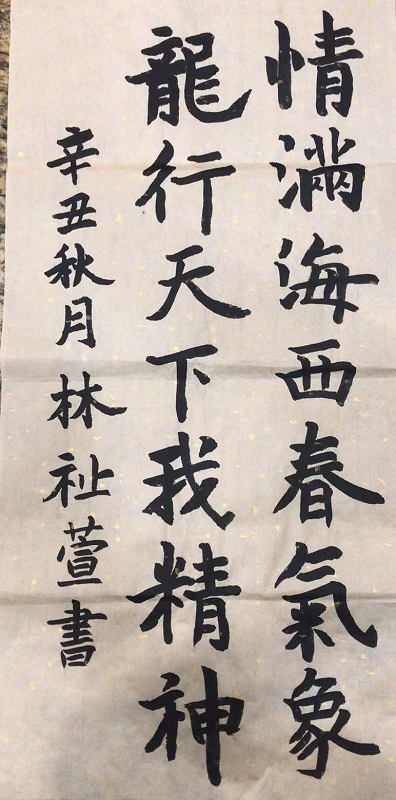 情滿海西春氣象
龍行天下我精神
辛丑秋月林祉萱書